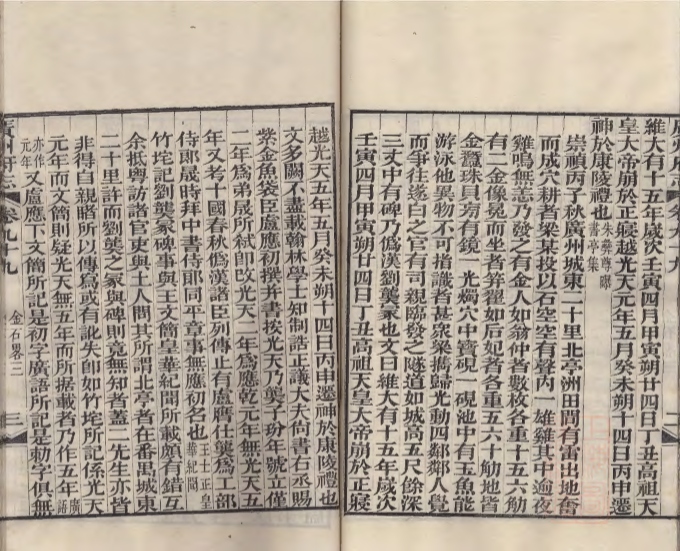 廣州府志 卷九十九
維大有十五年歲次壬寅四月甲寅朔廿四日丁丑高祖天
皇大帝崩於正寢越光天元年五月癸未朔十四日丙申遷
神於康陵禮也 朱彝尊曝書亭集
崇禎丙子秋廣州城東二十里北亭洲田間有雷出地奮
而成穴耕者梁某投以石空空有聲內一雄雞其中逾夜
雞鳴無恙乃發之有金人如翁仲者數枚各重十五六觔
有二金像冕而坐者笄翟如后妃者各重五六十觔地皆
金蠶珠貝旁有鏡一光燭穴中寶硯一硯池中有玉魚能
游泳他異物不可指識者甚衆梁攜歸光動四鄰鄰人覺
而爭往遂白之官有司親臨發之隧道如城高五尺餘深
三丈中有碑乃僞漢劉龑冢也文曰維大有十五年歲次
壬寅四月甲寅朔廿四日丁丑高祖天皇大帝崩於正寢
越光天五年五月癸未朔十四日丙申遷神於康陵禮也
文多闕不盡載翰林學士知制誥正議大夫尚書右丞賜
紫金魚袋臣盧應初撰幷書按光天乃龑子玢年號立僅
二年爲弟晟所弒卽改光天二年爲應乾元年無光天五
年又考十國春秋僞漢諸臣列傳止有盧膺仕龑爲工部
侍郎晟時拜中書侍郎同平章事無應初名也 王士正皇華紀聞
竹垞記劉龑冢碑事與王文簡皇華紀聞所載頗有錯互
余抵粵訪諸官吏與土人問其所謂北亭者在番禺城東
二十里許而劉龑之冢與碑則竟無知者蓋二先生亦皆
非得自親睹所以傳爲或有訛失卽如竹垞所記係光天
元年而文簡則疑光天無五年而所據載者乃作五年 廣語
亦作元年 又盧應下文簡所記是初字廣語所記是勅字俱無
廣州府志 卷九十九 金石畧三 三